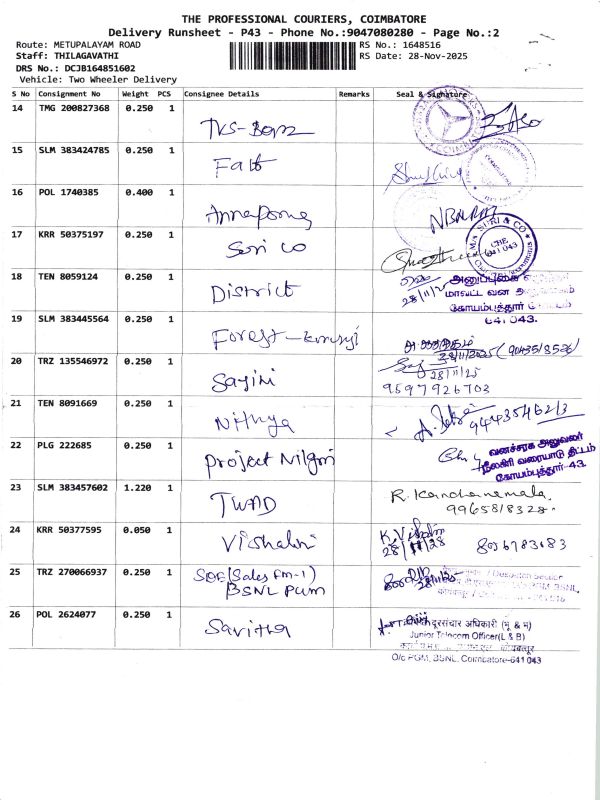 THE PROFESSIONAL COURIERS, COIMBATORE
Delivery Runsheet - P43 - Phone No.:9047080280 - Page No.:2
Route: METUPALAYAM ROAD
RS No.: 1648516
Staff: THILAGAVATHI
RS Date: 28-Nov-2025
DRS No.: DCJB164851602
Vehicle: Two Wheeler Delivery
S No Consignment No Weight PCS Consignee Details Remarks Seal & Signature
14 TMG 200827368 0.250 1
TVS-Benz
15 SLM 383424785 0.250 1
16 POL 1740385 0.400 1
Annapoorna
17 KRR 50375197 0.250 1
Suri co
SURI & CO
CBE
641 043
18 TEN 8059124 0.250 1
District
28/11/2
மாவட்ட வன
கோயம்புத்தூர்
641 043.
19 SLM 383445564 0.250 1
Forest
28/11/2025 (9043518526)
20 TRZ 135546972 0.250 1
Sagini
28/11/25
9597926703
21 TEN 8091669 0.250 1
Nithya
9443546213
22 PLG 222685 0.250 1
Project Nilgiri
வனச்சரக அலுவலர்
நீலகிரி வரையாடு திட்டம்
கோயம்புத்தூர்-43.
23 SLM 383457602 1.220 1
TWAD
R. Kanchanamala
9965818328
24 KRR 50377595 0.050 1
Vishalini
K. Vishalini
28/11/28
25 TRZ 270066937 0.250 1
SDE (Sales fm-1)
BSNL PGM
26 POL 2624077 0.250 1
Savitha
दूरसंचार अधिकारी (भू & भ)
Junior Telecom Officer(L & B)
O/o PGM, BSNL, Coimbatore-641 043